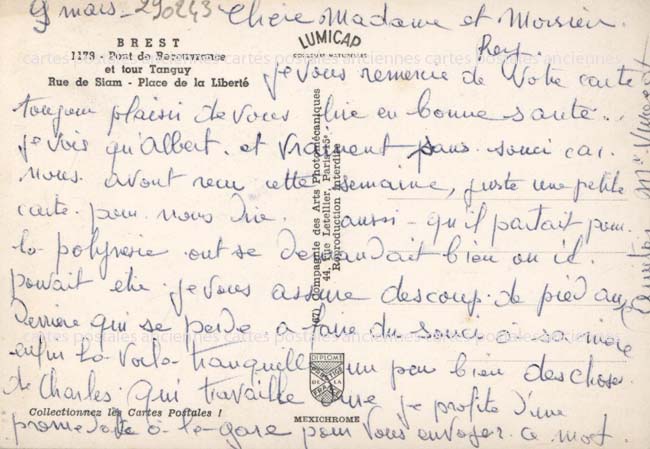 9 mars - 290243 Chère Madame et Monsieur
BREST
1179 - Pont de Recouvrance
et tour Tanguy
Rue de Siam - Place de la Liberté
LUMICAP
COULEURS NATURELLES
je vous remercie de Votre carte
toujours plaisir de vous lire en bonne santé..
je vois qu'Albert. et vraiment sans souci car.
nous. avont reçu cette semaine, juste une petite
carte. pour nous dire. aussi - qu'il partait pour
la polynesie ont se demandait bien ou il.
pouvait etre. je vous assure des coup. de pied au
derrière qui se perde a faire du souci a sa mère
enfin la voila tranquille un peu bien des choses.
de Charles. qui travaille je profite d'une
promenade a la gare pour vous envoyer ce mot.
(67) Compagnie des Arts Photomécaniques
44, rue Letellier, Paris-15e
Reproduction Interdite
DIPLOME
PRESTIGE
DE LA
FRANCE
Collectionnez les Cartes Postales !
MEXICHROME
cartes postales anciennes